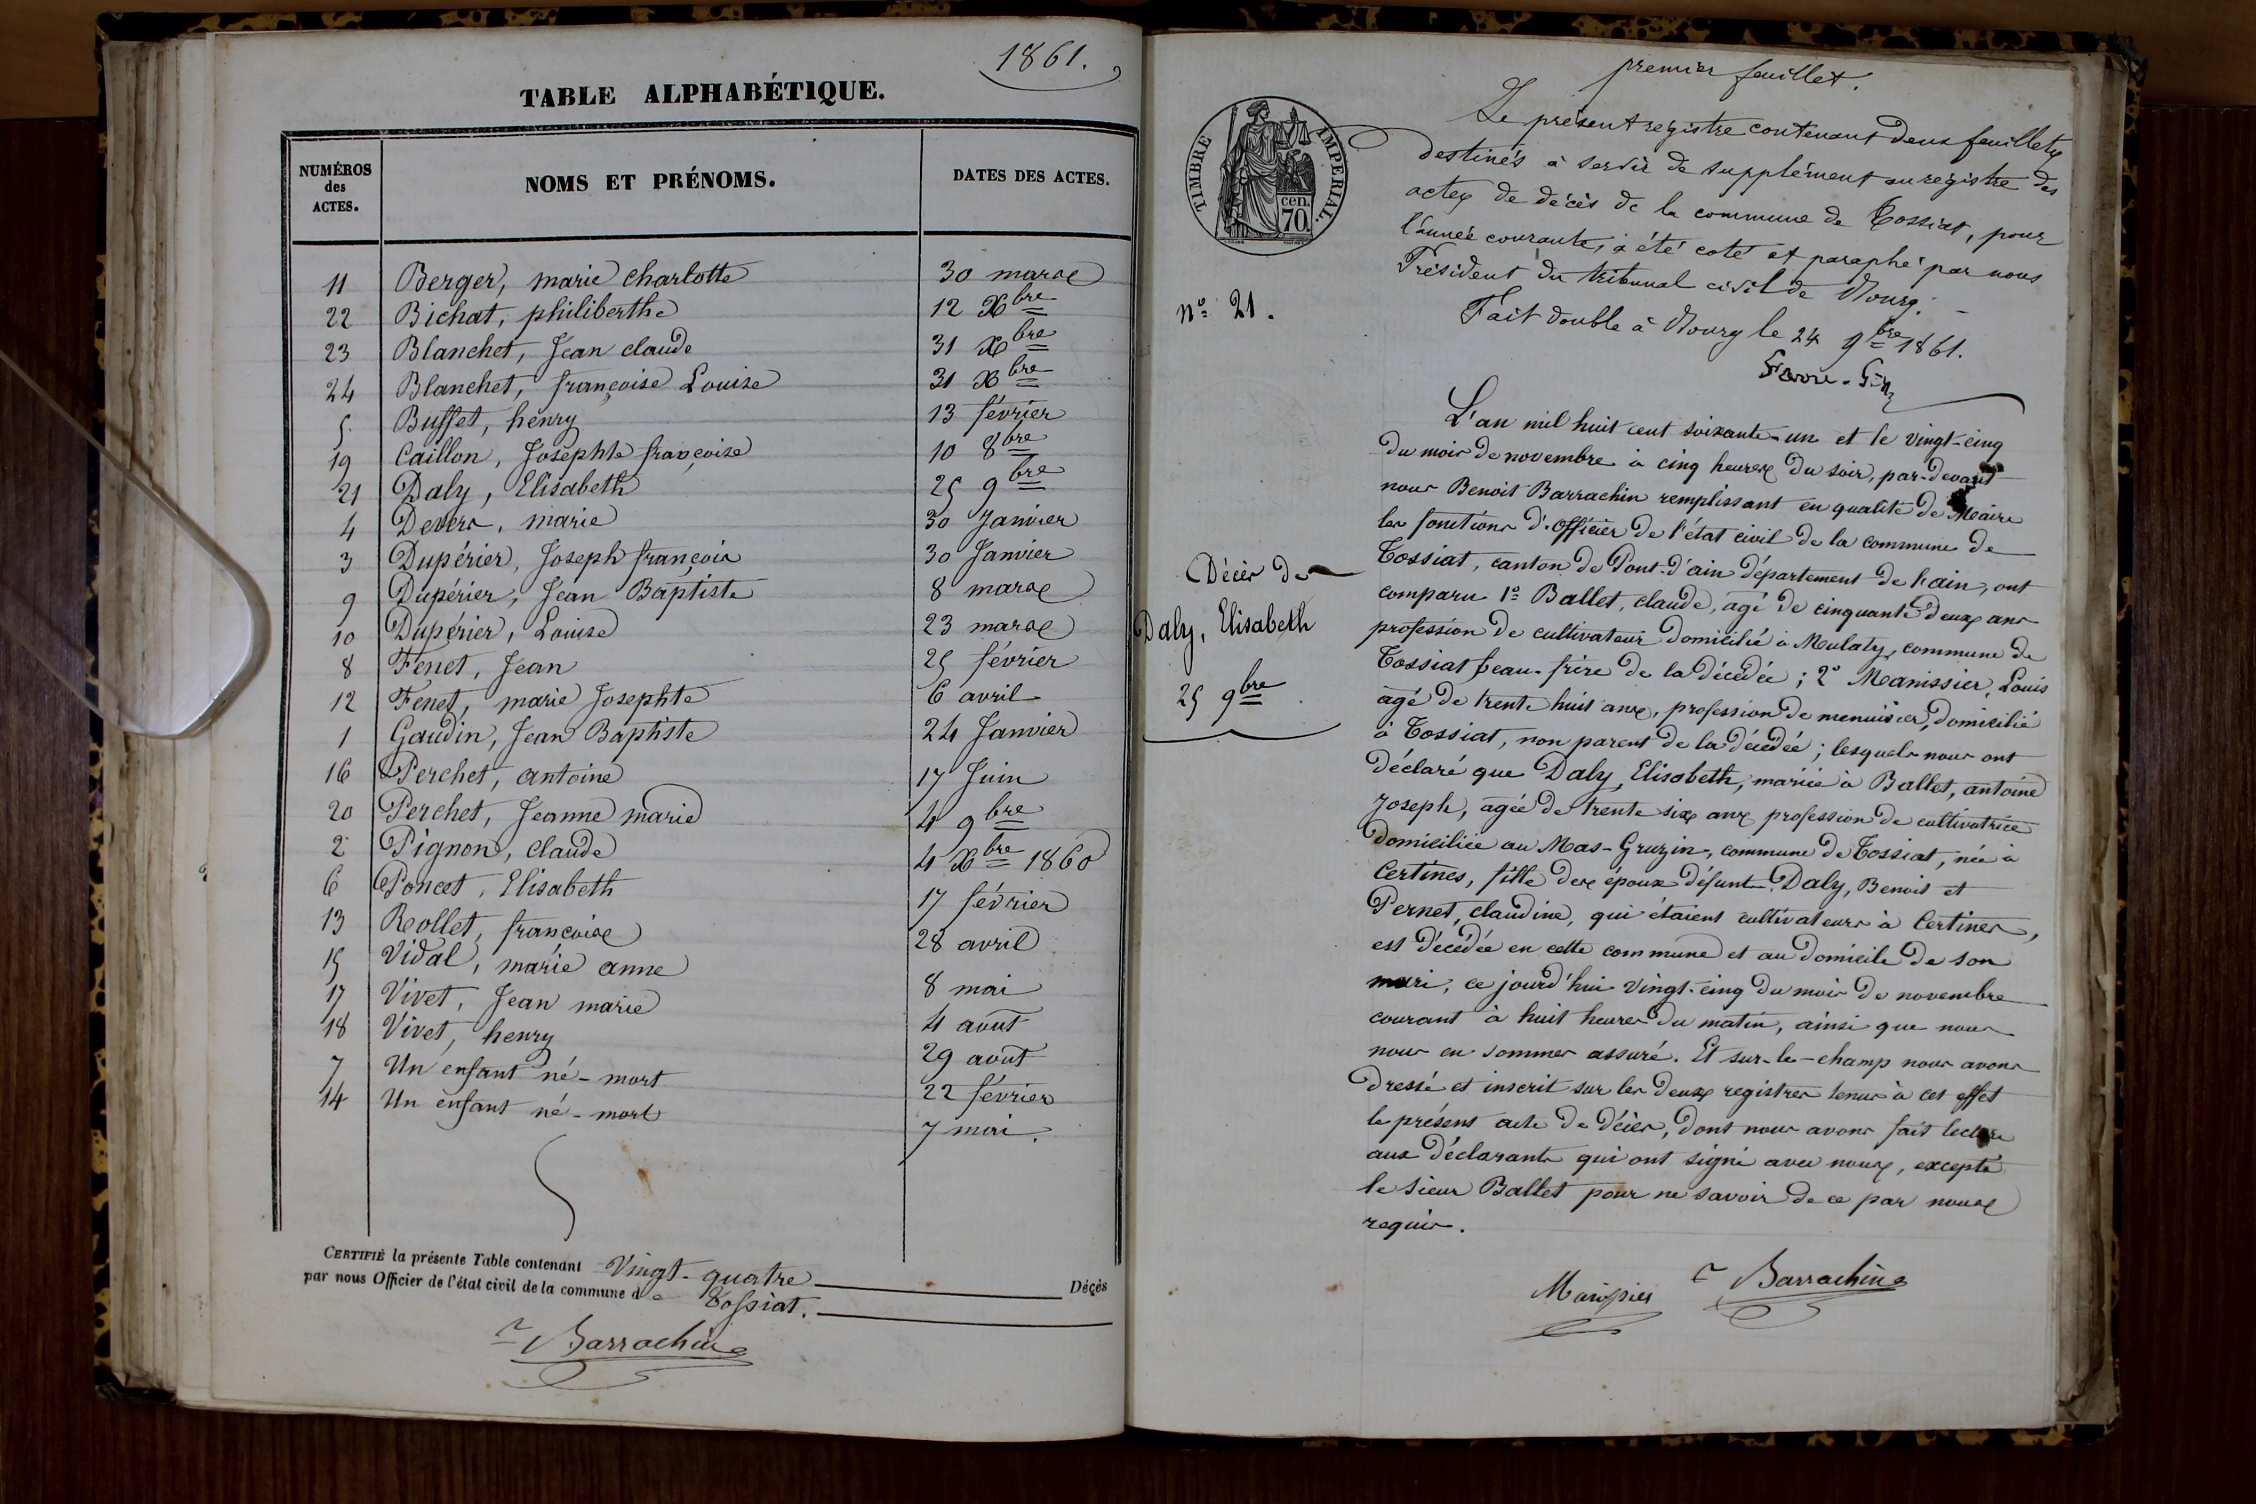 1861.
TABLE ALPHABÉTIQUE.
NUMÉROS des ACTES.
NOMS ET PRÉNOMS.
DATES DES ACTES.
11 Berger, marie charlotte 30 mars
22 Bichat, philiberthe 12 Xbre
23 Blanchet, Jean claude 31 Xbre
24 Blanchet, françoise Louise 31 Xbre
5 Buffet, henry 13 février
19 Caillon, Josephte françoise 10 8bre
21 Daly, Elisabeth 25 9bre
4 Devers, marie 30 Janvier
3 Dupérier, Joseph françois 30 Janvier
9 Dupérier, Jean Baptiste 8 mars
10 Dupérier, Louise 23 mars
8 Fenet, Jean 25 février
12 Fenet, marie Josephte 6 avril
1 Gaudin, Jean Baptiste 24 Janvier
16 Perchet, antoine 17 Juin
20 Perchet, Jeanne marie 4 9bre
2 Pignon, claude 4 Xbre 1860
6 Poncet, Elisabeth 17 février
13 Rollet, françoise 28 avril
15 Vidal, marie anne 8 mai
17 Vivet, Jean marie 4 août
18 Vivet, henry 29 août
7 Un enfant né-mort 22 février
14 Un enfant né-mort 7 mai.
CERTIFIÉ la présente Table contenant Vingt-quatre Décès
par nous Officier de l'état civil de la commune de Tossiat.
Barrachin
premier feuillet.
TIMBRE IMPERIAL.
cen. 70.
Le présent registre contenant deux feuillets
destinés à servir de supplément au registre des
actes de décès de la commune de Tossiat, pour
l'année courante, a été coté et paraphé par nous
Président du tribunal civil de Bourg.
Fait double à Bourg le 24 9bre 1861.
n° 21.
Décès de
Daly, Elisabeth
25 9bre
L'an mil huit cent soixante-un et le vingt-cinq
du mois de novembre à cinq heures du soir, par-devant
nous Benoit Barrachin remplissant en qualité de Maire
les fonctions d'officier de l'état civil de la commune de
Tossiat, canton de Pont-d'ain département de l'ain, ont
comparu 1° Ballet, claude, agé de cinquante-deux ans
profession de cultivateur domicilié à Mulaty, commune de
Tossiat beau-frère de la décédée ; 2° Manissier, Louis
agé de trente huit ans, profession de menuisier, domicilié
à Tossiat, non parent de la décédée ; lesquels nous ont
déclaré que Daly, Elisabeth, mariée à Ballet, antoine
Joseph, agée de trente six ans profession de cultivatrice
domiciliée au Mas-Gruzin, commune de Tossiat, née à
Certines, fille des époux défunts Daly, Benoit et
Pernet, claudine, qui étaient cultivateurs à Certines,
est décédée en cette commune et au domicile de son
mari, ce jourd'hui vingt-cinq du mois de novembre
courant à huit heures du matin, ainsi que nous
nous en sommes assuré. Et sur-le-champ nous avons
dressé et inscrit sur les deux registres tenus à cet effet
le présent acte de décès, dont nous avons fait lecture
aux déclarants qui ont signé avec nous, excepté
le sieur Ballet pour ne savoir de ce par nous
requis.
Manissier Barrachin